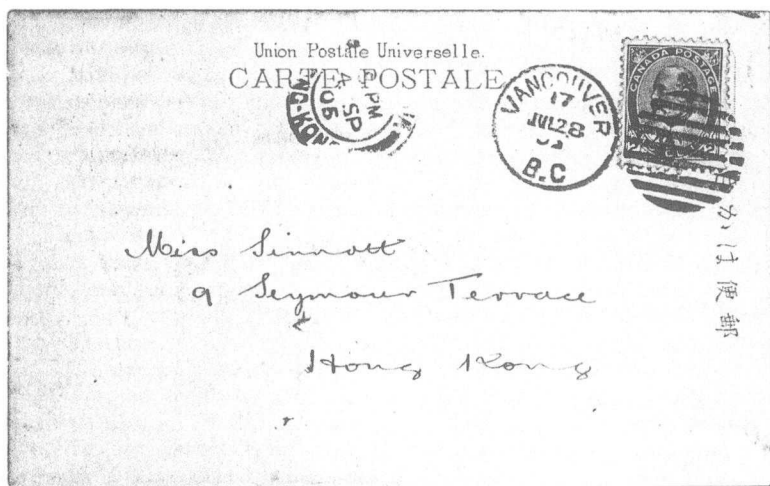 Union Postale Universelle.
CARTE POSTALE
NG-KON
PM
4 SP
05
VANCOUVER
17
JUL 28
B.C
CANADA POSTAGE
2
郵便はが
Miss Sinnott
9 Seymour Terrace
Hong Kong